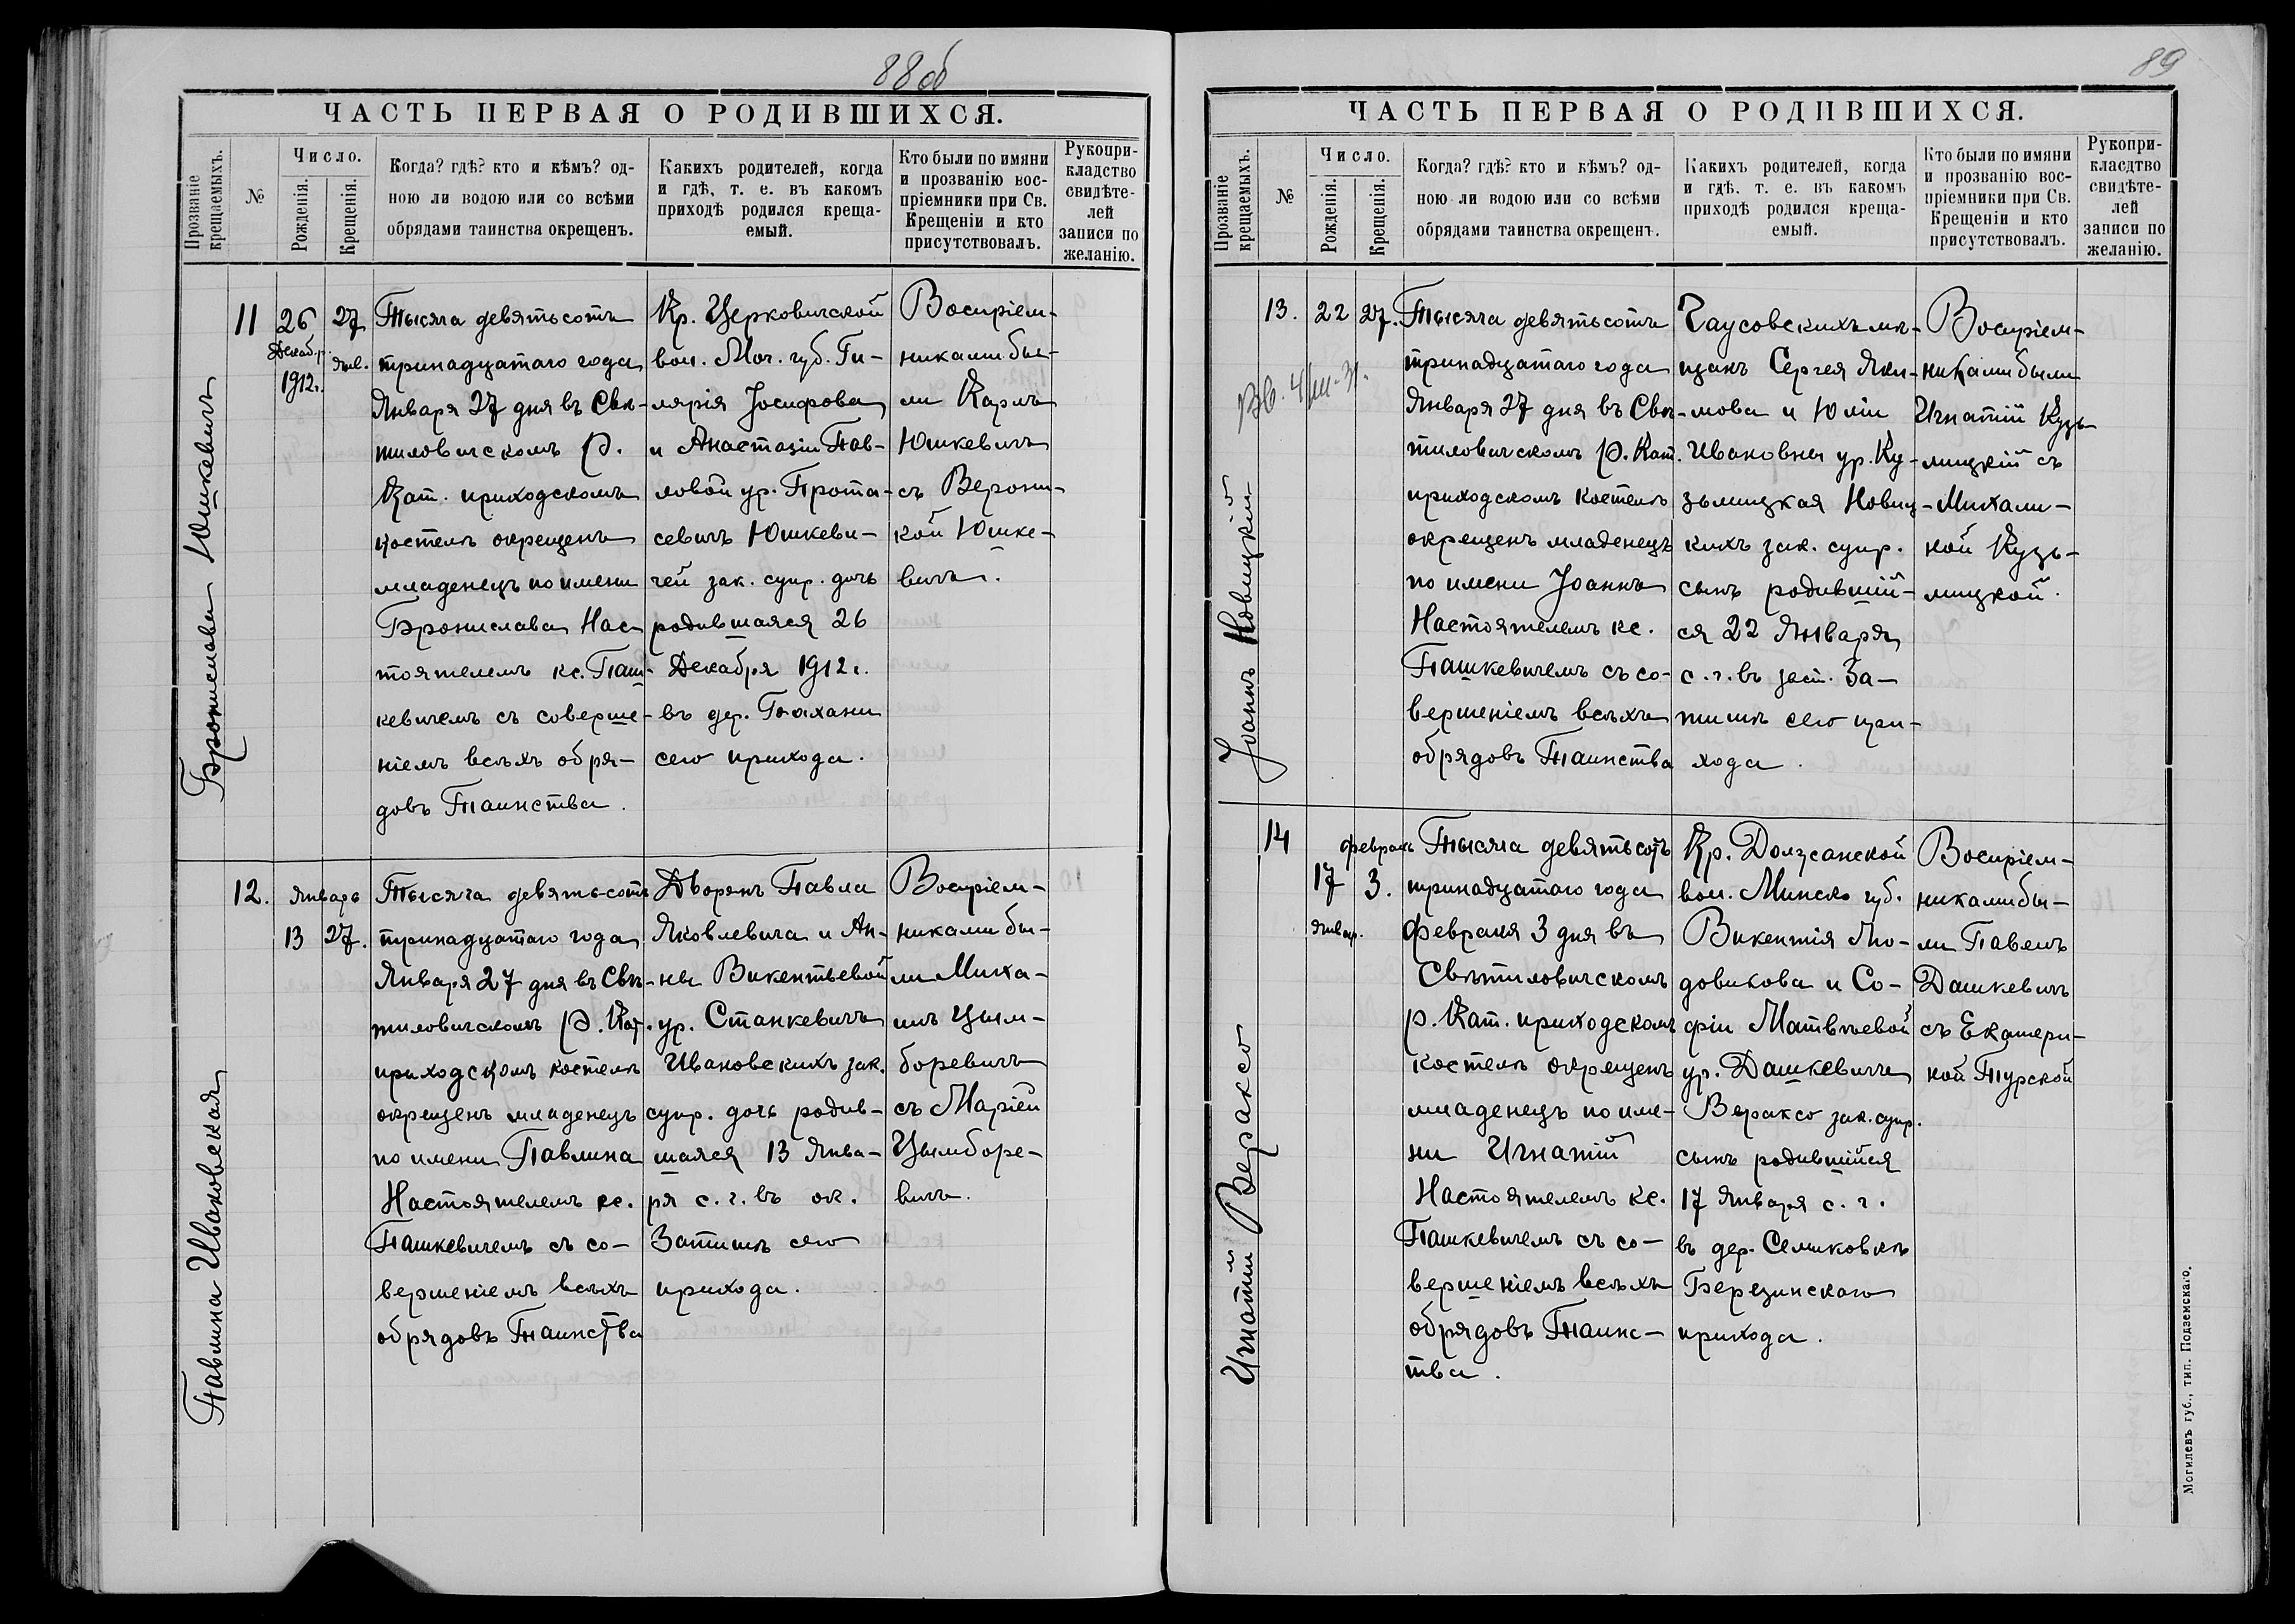 88 об
ЧАСТЬ ПЕРВАЯ О РОДИВШИХСЯ.
Прозваніе крещаемыхъ.
№
Число.
Рожденія.
Крещенія.
Когда? гдѣ? кто и кѣмъ? од-
ною ли водою или со всѣми
обрядами таинства окрещенъ.
Какихъ родителей, когда
и гдѣ, т. е. въ какомъ
приходѣ родился креща-
емый.
Кто были по имяни
и прозванію вос-
пріемники при Св.
Крещеніи и кто
присутствовалъ.
Рукопри-
кладство
свидѣте-
лей
записи по
желанію.
Бронислава Юшкевичъ
11
26
Декабр.
1912г.
27
янв.
Тысяча девятьсотъ
тринадцатаго года
Января 27 дня въ Свѣ-
тиловичскомъ р.
кат. приходскомъ
костелѣ окрещенъ
младенецъ по имени
Бронислава Нас
тоятелемъ кс. Паш-
кевичемъ съ соверше-
ніемъ всѣхъ обря-
довъ Таинства.
Кр. Церковичской
вол. Мог. губ. Ги-
лярія Іосифова
и Анастазіи Пав-
ловой ур. Прота-
севичъ Юшкеви-
чей зак. супр. дочь
родившаяся 26
Декабря 1912г.
въ дер.
сего прихода.
Воспріем-
никами бы-
ли Карлъ
Юшкевичъ
съ Верони-
кой Юшке-
вичъ.
Павлина Ивановская
12.
Январь
13
27.
Тысяча девятьсотъ
тринадцатаго года
Января 27 дня въ Свѣ-
тиловичскомъ р. Кат.
приходскомъ костелѣ
окрещенъ младенецъ
по имени Павлина
Настоятелемъ кс.
Пашкевичемъ съ со-
вершеніемъ всѣхъ
обрядовъ Таинства
Дворянъ Павла
Яковлевича и Ан-
ны Викентьевой
ур. Станкевичъ
Ивановскихъ зак.
супр. дочь родив-
шаяся 13 Янва-
ря с. г. въ ок.
Затишѣ сего
прихода.
Воспріем-
никами бы-
ли Миха-
илъ Цым-
боревичъ
съ Маріей
Цымборе-
вичъ.
89
ЧАСТЬ ПЕРВАЯ О РОДИВШИХСЯ.
Прозваніе крещаемыхъ.
№
Число.
Рожденія.
Крещенія.
Когда? гдѣ? кто и кѣмъ? од-
ною ли водою или со всѣми
обрядами таинства окрещенъ.
Какихъ родителей, когда
и гдѣ. т. е. въ какомъ
приходѣ родился креща-
емый.
Кто были по имяни
и прозванію вос-
пріемники при Св.
Крещеніи и кто
присутствовалъ.
Рукопри-
класдтво
свидѣте-
лей
записи по
желанію.
Іоаннъ Новицкій
13.
22
27.
Тысяча девятьсотъ
тринадцатаго года
Января 27 дня въ Свѣ-
тиловичскомъ р. Кат.
приходскомъ костелѣ
окрещенъ младенецъ
по имени Іоаннъ
Настоятелемъ кс.
Пашкевичемъ съ со-
вершеніемъ всѣхъ
обрядовъ Таинства
Чаусовскихъ мѣ-
щанъ Сергея Яки-
мова и Юліи
Ивановны ур. Ку-
зьмицкая Новиц-
кихъ зак. супр.
сынъ родившій-
ся 22 Января
с. г. въ заст. За-
тишѣ сего при-
хода.
Воспріем-
никами были
Игнатій Кузь
мицкій съ
Михали-
ной Кузь-
мицкой.
Игнатій Вераксо
14
Февраль
17
Январ.
3.
Тысяча девятьсотъ
тринадцатаго года
Февраля 3 дня въ
Свѣтиловичскомъ
р. Кат. приходскомъ
костелѣ окрещенъ
младенецъ по име-
ни Игнатій
Настоятелемъ кс.
Пашкевичемъ съ со-
вершеніемъ всѣхъ
обрядовъ Таинс-
тва.
Кр. Долзсанской
вол. Минско губ.
Викентія Лю-
довикова и Со-
фіи Матвѣевой
ур. Дашкевичъ
Вераксо зак. супр.
сынъ родившійся
17 Января с. г.
въ дер. Семиковкѣ
Березинскаго
прихода.
Воспріем-
никами бы-
ли Павелъ
Дашкевичъ
съ Екатери-
ной Турской
Могилевъ губ., тип. Подземскаго.